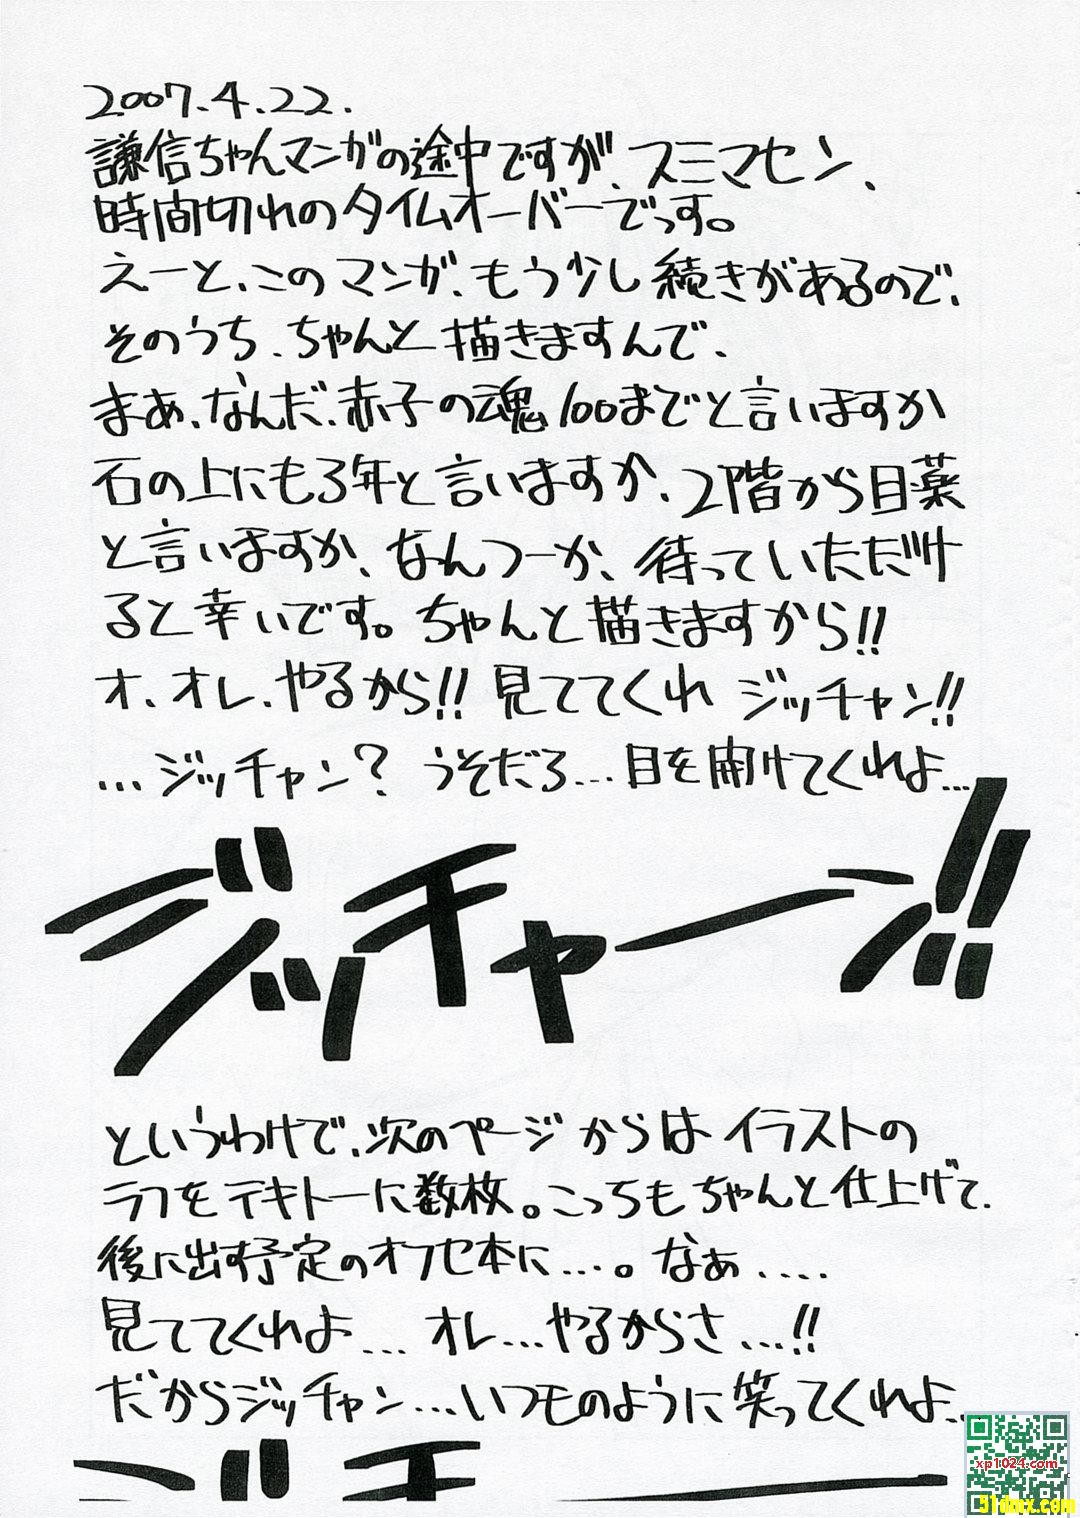 2007.4.22.
謙信ちゃんマンガの途中ですが、スミマセン、
時間切れのタイムオーバーでっす。
えーと、このマンガ、もう少し続きがあるので、
そのうち、ちゃんと描きますんで、
まあ、なんだ、赤子の魂100までと言いますか
石の上にも3年と言いますか、2階から目薬
と言いますか、なんつーか、待っていただけ
ると幸いです。ちゃんと描きますから!!
オ、オレ、やるから!! 見ててくれ ジッチャン!!
…ジッチャン? うそだろ…目を開けてくれよ…
ジッチャーン!!
というわけで、次のページからはイラストの
ラフをテキトーに数枚。こっちもちゃんと仕上げて、
後に出す予定のオフセ本に…。なぁ‥‥
見ててくれよ… オレ…やるからさ…!!
だからジッチャン…いつものように笑ってくれよ…
xp1024.com
51dmx.com